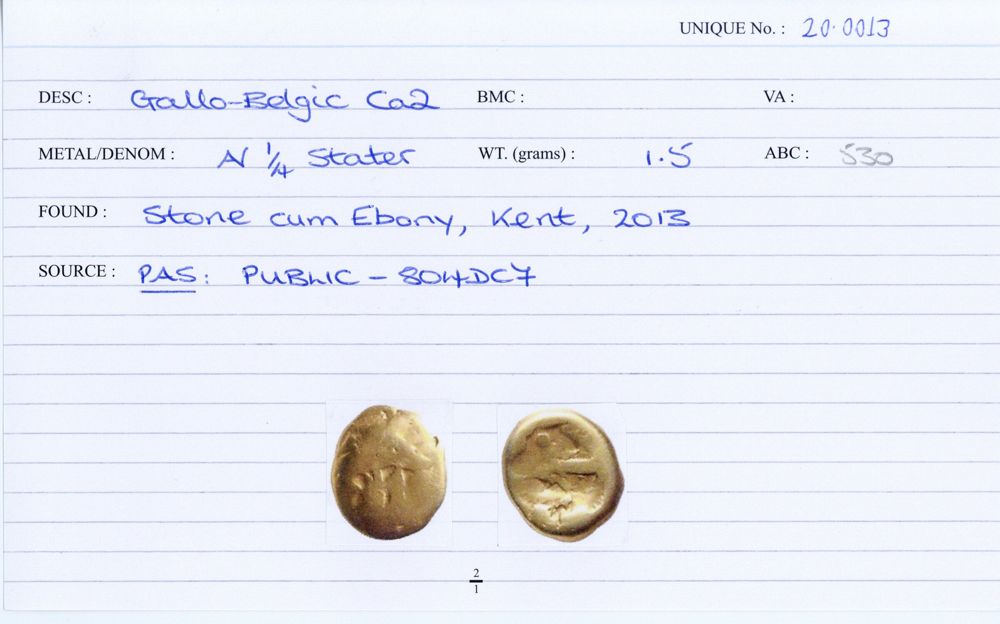 UNIQUE No. : 20.0013
DESC : Gallo-Belgic Ca2 BMC : VA :
METAL/DENOM : AV 1/4 Stater WT. (grams) : 1.5 ABC : 530
FOUND : Stone cum Ebony, Kent, 2013
SOURCE : PAS: PUBLIC - 804DC7
2
1